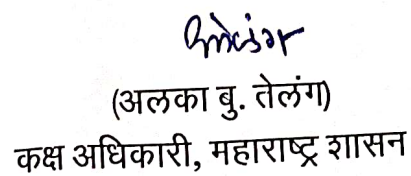 (अलका बु. तेलंग)
कक्ष अधिकारी, महाराष्ट्र शासन